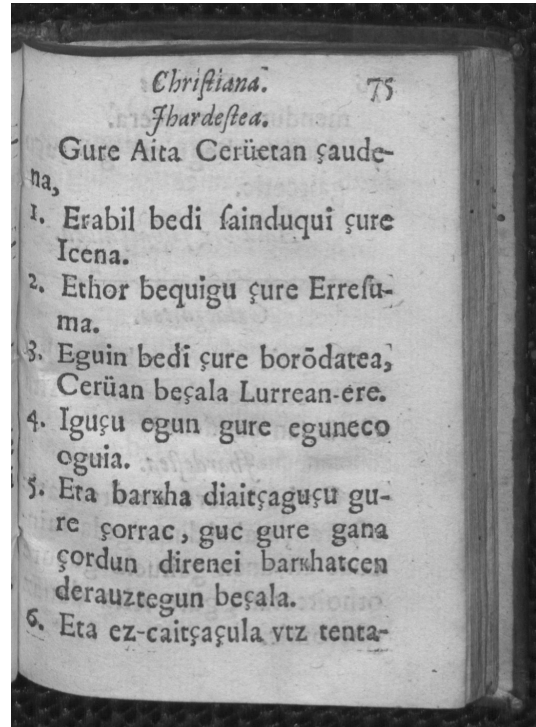 Chriſtiana. 75
Jhardeſtea.
Gure Aita Cerüetan çaude-
na,
1. Erabil bedi ſainduqui çure
Icena.
2. Ethor bequigu çure Erreſu-
ma.
3. Eguin bedi çure borõdatea,
Cerüan beçala Lurrean-ere.
4. Iguçu egun gure eguneco
oguia.
5. Eta barĸha diaitçaguçu gu-
re çorrac, guc gure gana
çordun direnei barĸhatcen
derauztegun beçala.
6. Eta ez-caitçaçula vtz tenta-